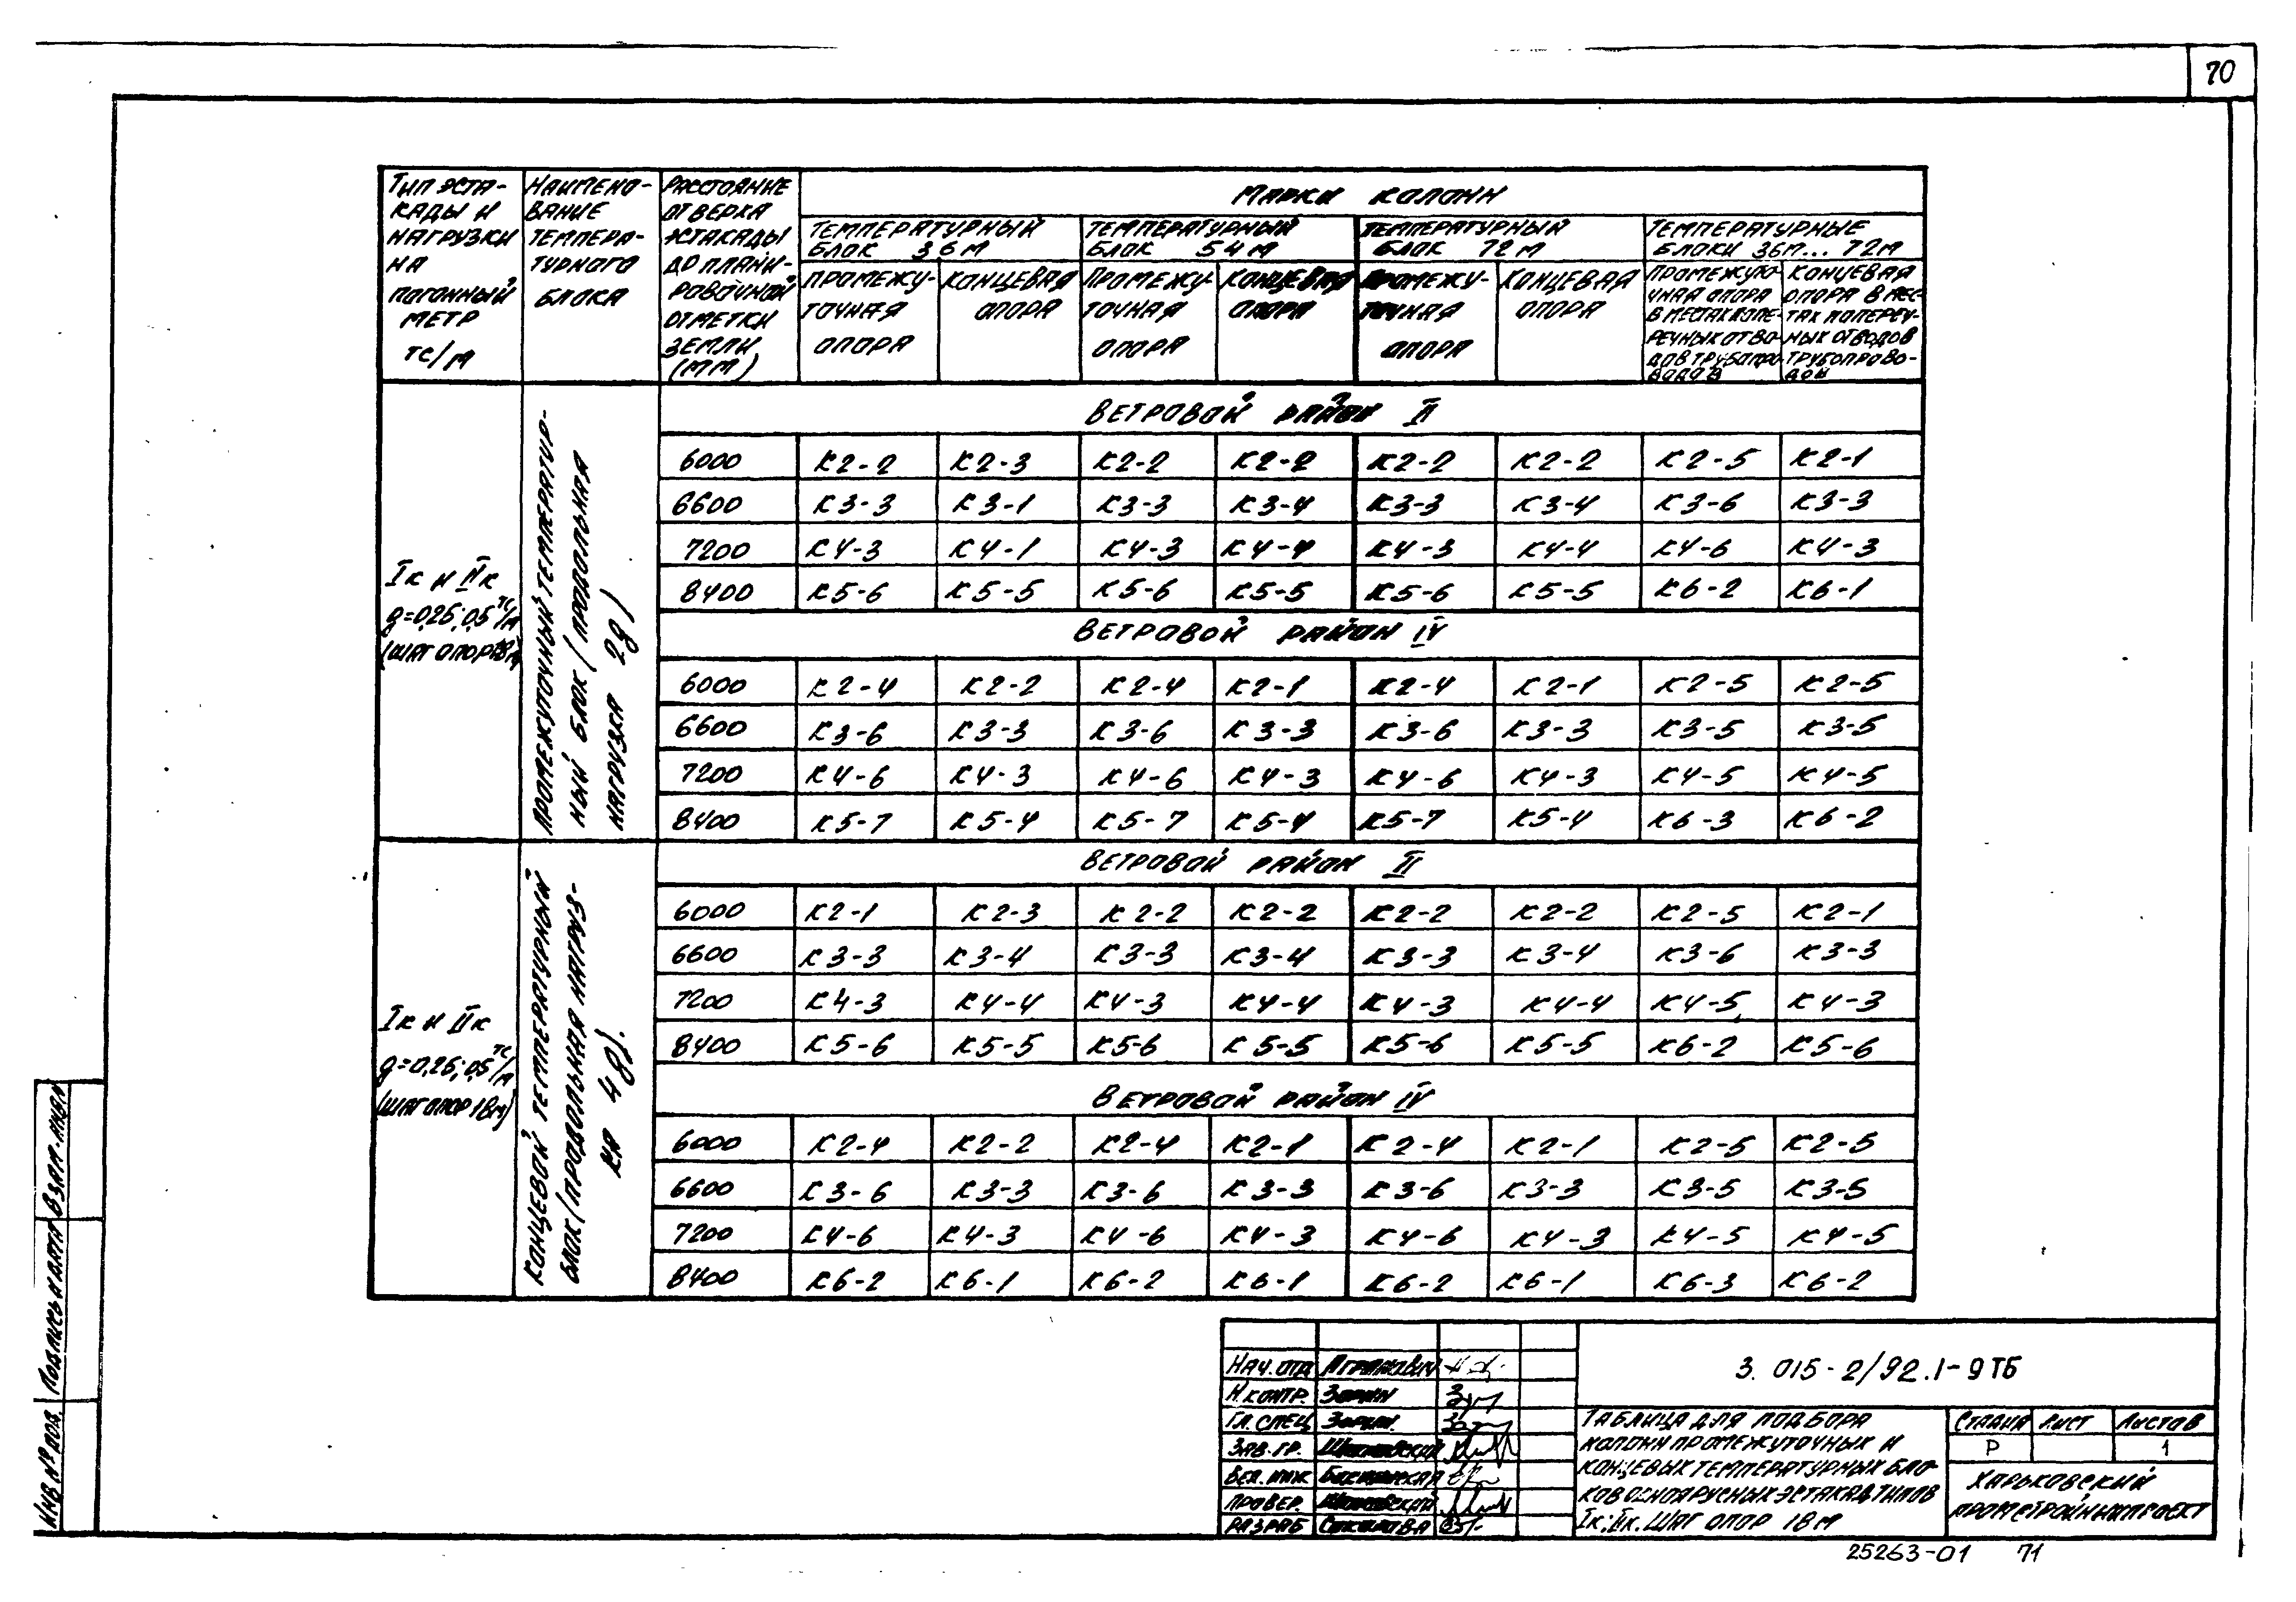 70
Тип эста-
кады и
нагрузки
на
погонный
метр
тс/м
Наимено-
вание
темпера-
турного
блока
Расстояние
от верха
эстакады
до плани-
ровочной
отметки
земли
(мм)
Марки колонн
Температурный
блок 36м
Температурный
блок 54м
Температурный
блок 72м
Температурные
блоки 36м... 72м
Промежу-
точная
опора
Концевая
опора
Промежу-
точная
опора
Концевая
опора
Промежу-
точная
опора
Концевая
опора
Промежуто
чная опора
в местах попе-
речных отво-
дов трубопро
водов
Концевая
опора в мес-
тах попереч-
ных отводов
трубопрово-
дов
Iк и IIк
g=0,25; 0,5 тс/м
(шаг опор 18м)
Промежуточный температур-
ный блок (продольная
нагрузка 2g)
Ветровой район II
6000 К2-2 К2-3 К2-2 К2-2 К2-2 К2-2 К2-5 К2-1
6600 К3-3 К3-1 К3-3 К3-4 К3-3 К3-4 К3-6 К3-3
7200 К4-3 К4-1 К4-3 К4-4 К4-3 К4-4 К4-6 К4-3
8400 К5-6 К5-5 К5-6 К5-5 К5-6 К5-5 К6-2 К6-1
Ветровой район IV
6000 К2-4 К2-2 К2-4 К2-1 К2-4 К2-1 К2-5 К2-5
6600 К3-6 К3-3 К3-6 К3-3 К3-6 К3-3 К3-5 К3-5
7200 К4-6 К4-3 К4-6 К4-3 К4-6 К4-3 К4-5 К4-5
8400 К5-7 К5-4 К5-7 К5-4 К5-7 К5-4 К6-3 К6-2
Iк и IIк
g=0,25; 0,5 тс/м
(шаг опор 18м)
Концевой температурный
блок (продольная нагруз-
ка 4g).
Ветровой район II
6000 К2-1 К2-3 К2-2 К2-2 К2-2 К2-2 К2-5 К2-1
6600 К3-3 К3-4 К3-3 К3-4 К3-3 К3-4 К3-6 К3-3
7200 К4-3 К4-4 К4-3 К4-4 К4-3 К4-4 К4-5 К4-3
8400 К5-6 К5-5 К5-6 К5-5 К5-6 К5-5 К6-2 К5-6
Ветровой район IV
6000 К2-4 К2-2 К2-4 К2-1 К2-4 К2-1 К2-5 К2-5
6600 К3-6 К3-3 К3-6 К3-3 К3-6 К3-3 К3-5 К3-5
7200 К4-6 К4-3 К4-6 К4-3 К4-6 К4-3 К4-5 К4-5
8400 К6-2 К6-1 К6-2 К6-1 К6-2 К6-1 К6-3 К6-2
Инв № под. Подпись и дата Взам. инв. №
Нач. отд Агранович
Н. контр. Зорин
Гл. спец Зорин.
Зав. гр.
Вед. инж
Провер.
Разраб
3. 015-2/92.1-9ТБ
Таблица для подбора
колонн промежуточных и
концевых температурных бло-
ков одноярусных эстакад типов
Iк, IIк. Шаг опор 18м
Стадия Лист Листов
Р 1
Харьковский
Промстройниипроект
25263-01 71